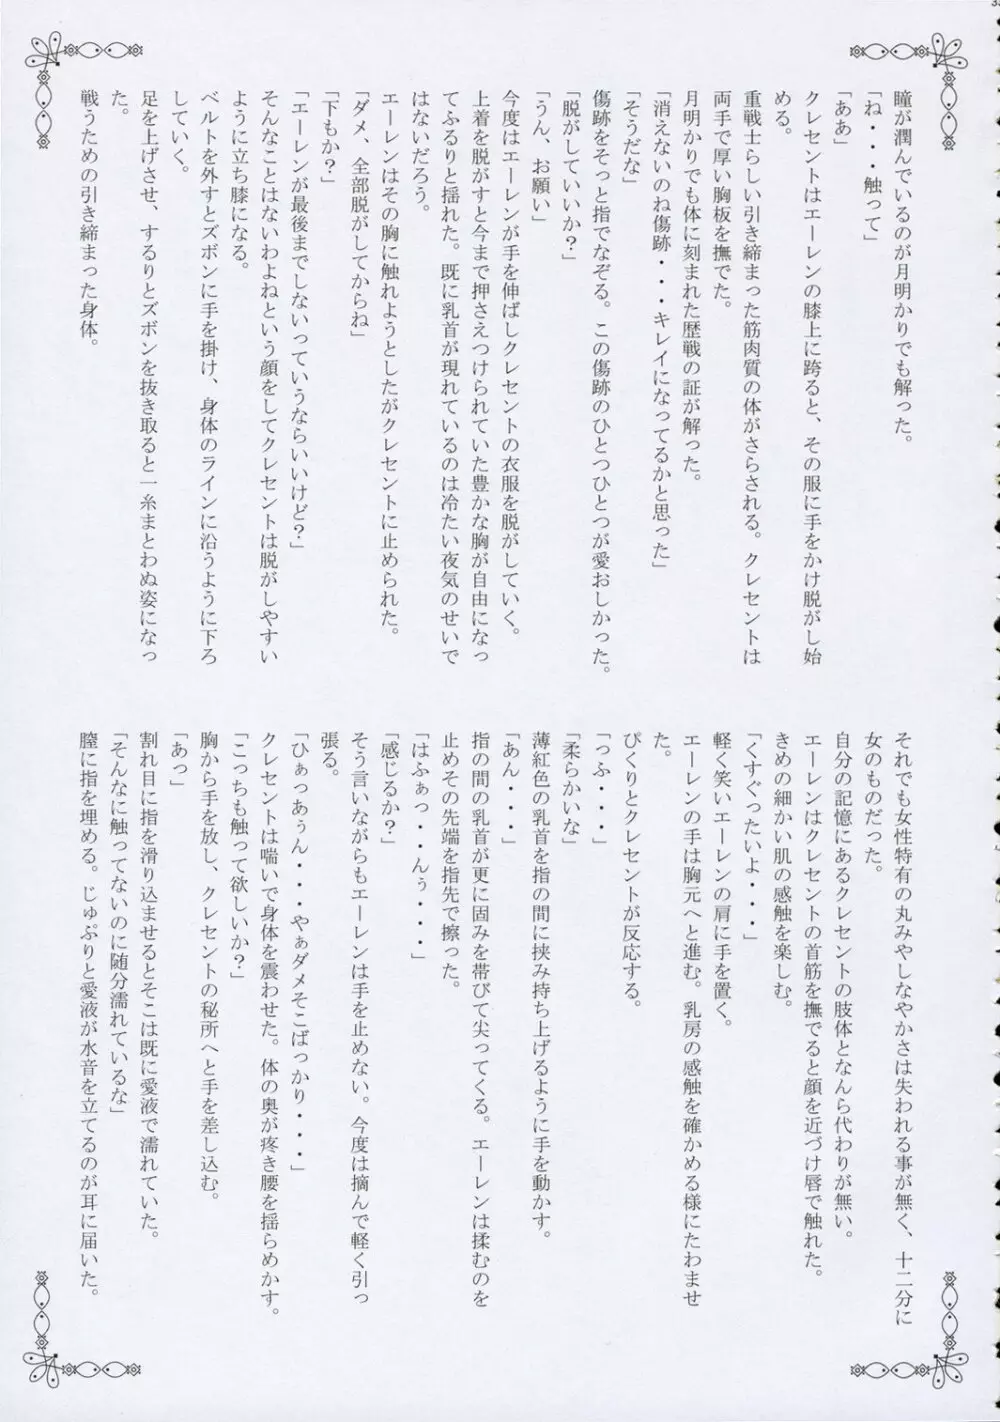 瞳が潤んでいるのが月明かりでも解った。
「ね・・・触って」
「ああ」
クレセントはエーレンの膝上に跨ると、その服に手をかけ脱がし始
める。
重戦士らしい引き締まった筋肉質の体がさらされる。クレセントは
両手で厚い胸板を撫でた。
月明かりでも体に刻まれた歴戦の証が解った。
「消えないのね傷跡・・・キレイになってるかと思った」
「そうだな」
傷跡をそっと指でなぞる。この傷跡のひとつひとつが愛おしかった。
「脱がしていいか？」
「うん、お願い」
今度はエーレンが手を伸ばしクレセントの衣服を脱がしていく。
上着を脱がすと今まで押さえつけられていた豊かな胸が自由になっ
てふるりと揺れた。既に乳首が現れているのは冷たい夜気のせいで
はないだろう。
エーレンはその胸に触れようとしたがクレセントに止められた。
「ダメ、全部脱がしてからね」
「下もか？」
「エーレンが最後までしないっていうならいいけど？」
そんなことはないわよねという顔をしてクレセントは脱がしやすい
ように立ち膝になる。
ベルトを外すとズボンに手を掛け、身体のラインに沿うように下ろ
していく。
足を上げさせ、するりとズボンを抜き取ると一糸まとわぬ姿になっ
た。
戦うための引き締まった身体。
それでも女性特有の丸みやしなやかさは失われる事が無く、十二分に
女のものだった。
自分の記憶にあるクレセントの肢体となんら代わりが無い。
エーレンはクレセントの首筋を撫でると顔を近づけ唇で触れた。
きめの細かい肌の感触を楽しむ。
「くすぐったいよ・・・」
軽く笑いエーレンの肩に手を置く。
エーレンの手は胸元へと進む。乳房の感触を確かめる様にたわませ
た。
ぴくりとクレセントが反応する。
「っふ・・・」
「柔らかいな」
薄紅色の乳首を指の間に挟み持ち上げるように手を動かす。
「あん・・・」
指の間の乳首が更に固みを帯びて尖ってくる。エーレンは揉むのを
止めその先端を指先で擦った。
「はふぁっ・・んぅ・・・」
「感じるか？」
そう言いながらもエーレンは手を止めない。今度は摘んで軽く引っ
張る。
「ひぁっあぅん・・・やぁダメそこばっかり・・・」
クレセントは喘いで身体を震わせた。体の奥が疼き腰を揺らめかす。
「こっちも触って欲しいか？」
胸から手を放し、クレセントの秘所へと手を差し込む。
「あっ」
割れ目に指を滑り込ませるとそこは既に愛液で濡れていた。
「そんなに触ってないのに随分濡れているな」
膣に指を埋める。じゅぷりと愛液が水音を立てるのが耳に届いた。